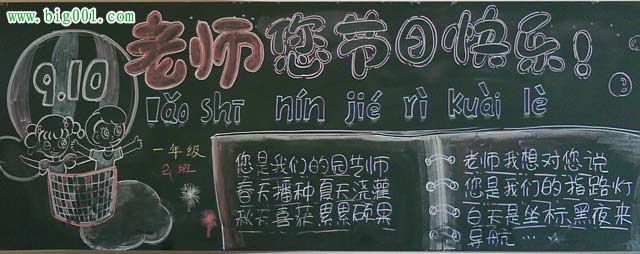 www.big001.com
9.10
老师您节日快乐！
lǎo shī nín jié rì kuài lè
一年级
2班
您是我们的园艺师
春天播种夏天浇灌
秋天喜获累累硕果
老师我想对您说
您是我们的指路灯
白天是坐标黑夜来
导航…